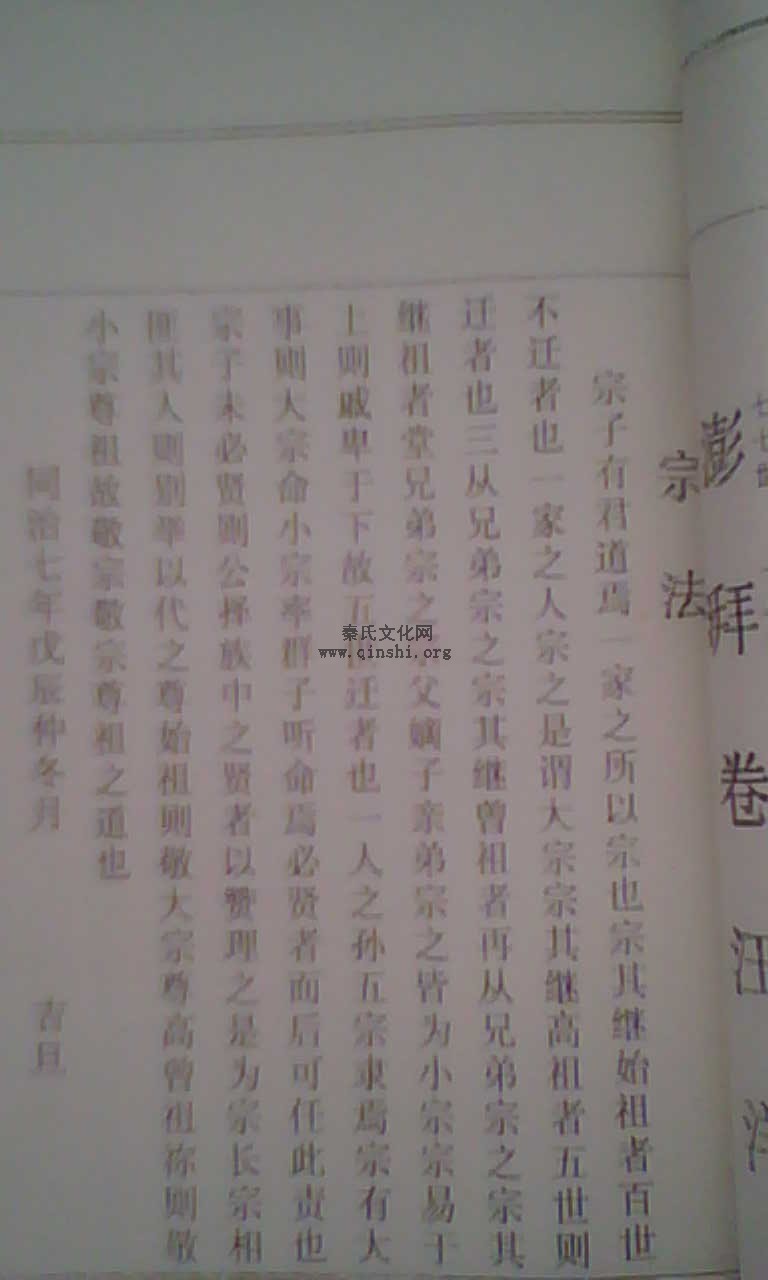 澎拜卷汪洋
宗法
宗子有君道焉一家之所以宗也宗其继始祖者百世
不迁者也一家之人宗之是谓大宗宗其继高祖者五世则
迁者也三从兄弟宗之宗其继曾祖者再从兄弟宗之宗其
继祖者堂兄弟宗之 父嫡子亲弟宗之皆为小宗宗易于
上则戚卑于下故五 迁者也一人之孙五宗隶焉宗有大
事则大宗命小宗率群子听命焉必贤者而后可任此责也
宗子未必贤则公择族中之贤者以赞理之是为宗长宗相
匪其人则别举以代之尊始祖则敬大宗尊高曾祖祢则敬
小宗尊祖故敬宗敬宗尊祖之道也
同治七年戊辰仲冬月 吉旦
秦氏文化网
www.qinshi.org